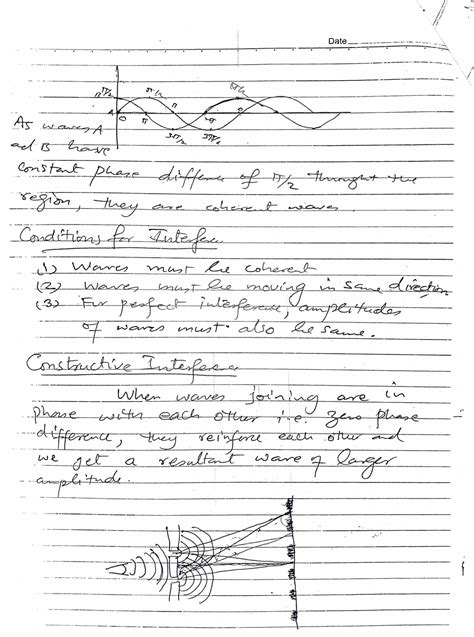 Date
B π/2 5π/2 π 5π/2
A O π 3π/2
As waves A
ad B have
constant phase differnce of π/2 throught the
region, they are coherent waves.
Conditions for Interfere
(1) Waves must be coherent
(2) Waves must be moving in same direction
(3) For perfect interference, amplitudes
of waves must also be same.
Constructive Interference
When waves joining are in
phase with each other i.e. zero phase
difference, they reinforce each other ad
we get a resultant wave of larger
amplitude.